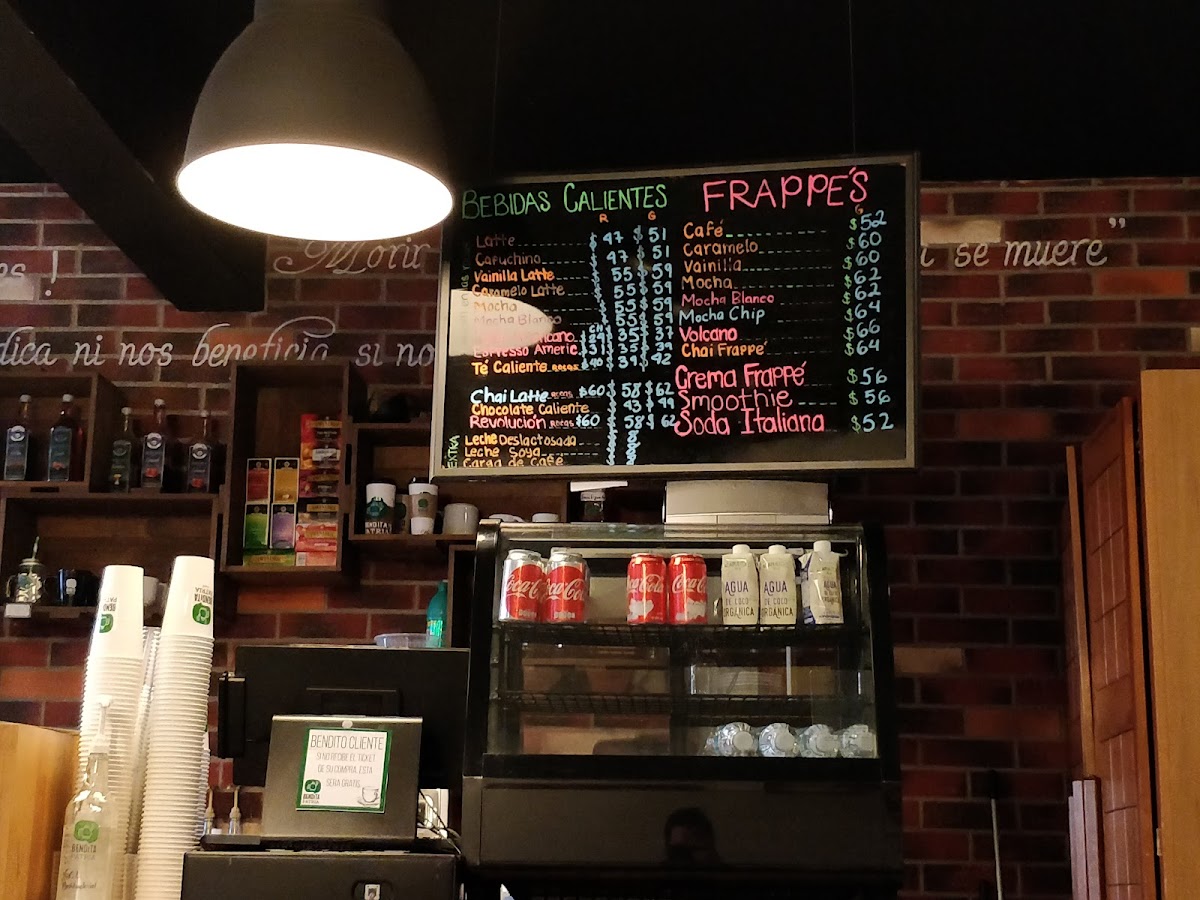 BEBIDAS CALIENTES
R G
Latte $ 47 $ 51
Capuchino $ 47 $ 51
Vainilla Latte $ 55 $ 59
Caramelo Latte $ 55 $ 59
Mocha $ 55 $ 59
Mocha Blanco $ 55 $ 59
$ 35 $ 37
Espresso Americ. $31 $ 35 $ 39
Té Caliente ROCAS $40 $ 39 $ 42
Chai Latte ROCAS $60 $ 58 $ 62
Chocolate Caliente $ 43 $ 49
Revolución ROCAS $60 $ 58 $ 62
EXTRA
Leche Deslactosada
Leche Soya
Carga de Café
FRAPPE'S
G
Café $52
Caramelo $60
Vainilla $60
Mocha $62
Mocha Blanco $62
Mocha Chip $64
Volcano $66
Chai Frappé $64
Crema Frappé $56
Smoothie $56
Soda Italiana $52
Morir
se muere"
!
dica ni nos beneficia si no
Coca-Cola
Coca-Cola
Coca-Cola
Coca-Cola
AGUA
DE COCO
ORGÁNICA
AGUA
DE COCO
ORGÁNICA
AGUA
BENDITA
PATRIA
BENDITO CLIENTE
SI NO RECIBE EL TICKET
DE SU COMPRA, ESTA
SERA GRATIS.
BENDITA
PATRIA
BENDITA
PATRIA
BENDITA
BENDITA
PATRIA